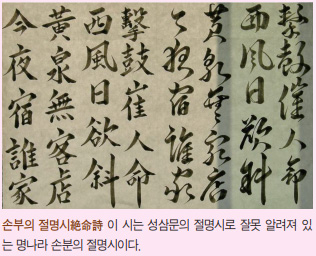 擊鼓催人命
西風日欲斜
黃泉無客店
今夜宿誰家
擊鼓崔人命
西風日欲斜
黃泉無客店
今夜宿誰家
손부의 절명시絶命詩 이 시는 성삼문의 절명시로 잘못 알려져 있
는 명나라 손분의 절명시이다.